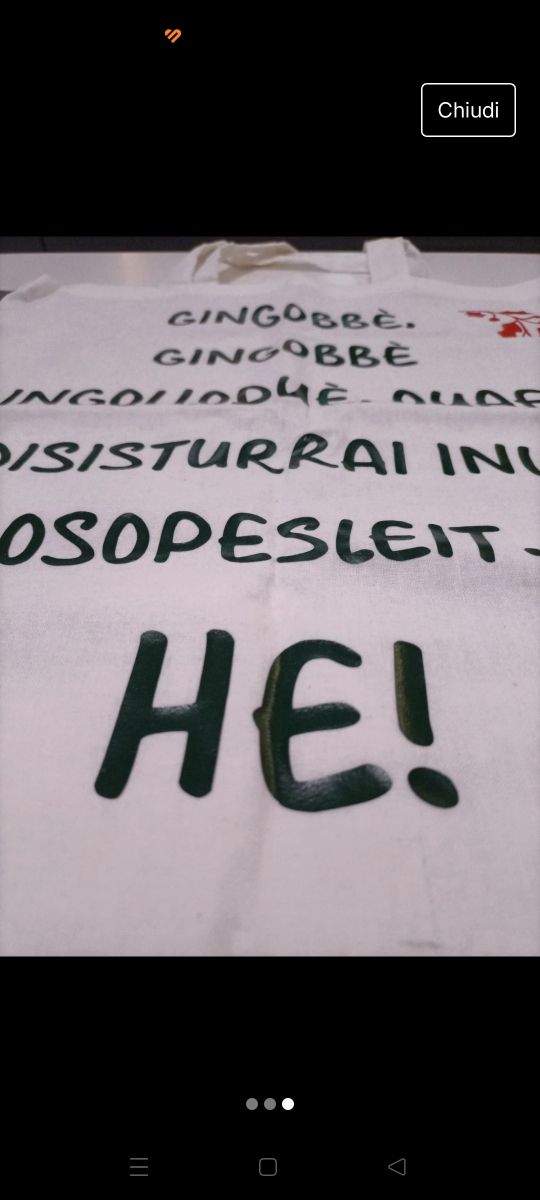 Chiudi
GINGOBBÈ.
GINGOBBÈ
DISISTURRAI INU
OSOPESLEIT
HE!